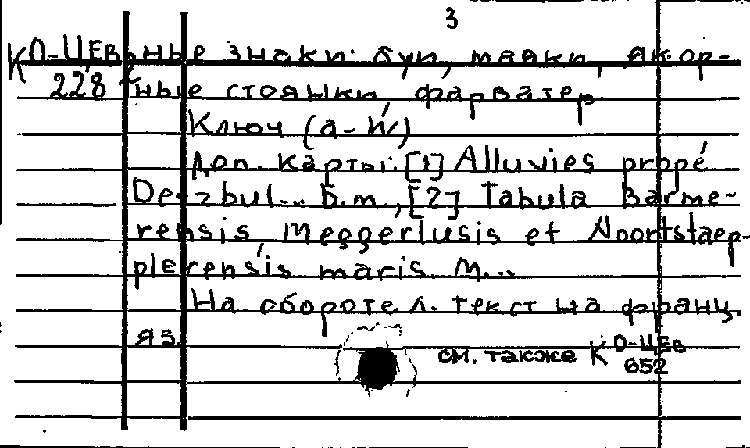 3
К О-ЦЕВ ьные знаки: буи, маяки, якор-
228 ные стоянки, фарватер
Ключ (а-и)
Доп. карты: [1] Alluvies propé
Derzbul... Б.м., [2] Tabula Barme-
rensis, Meggerlusis et Noortstaep-
plerensis maris. М...
На обороте л. текст на франц.
яз.
см. также К О-ЦЕВ
652